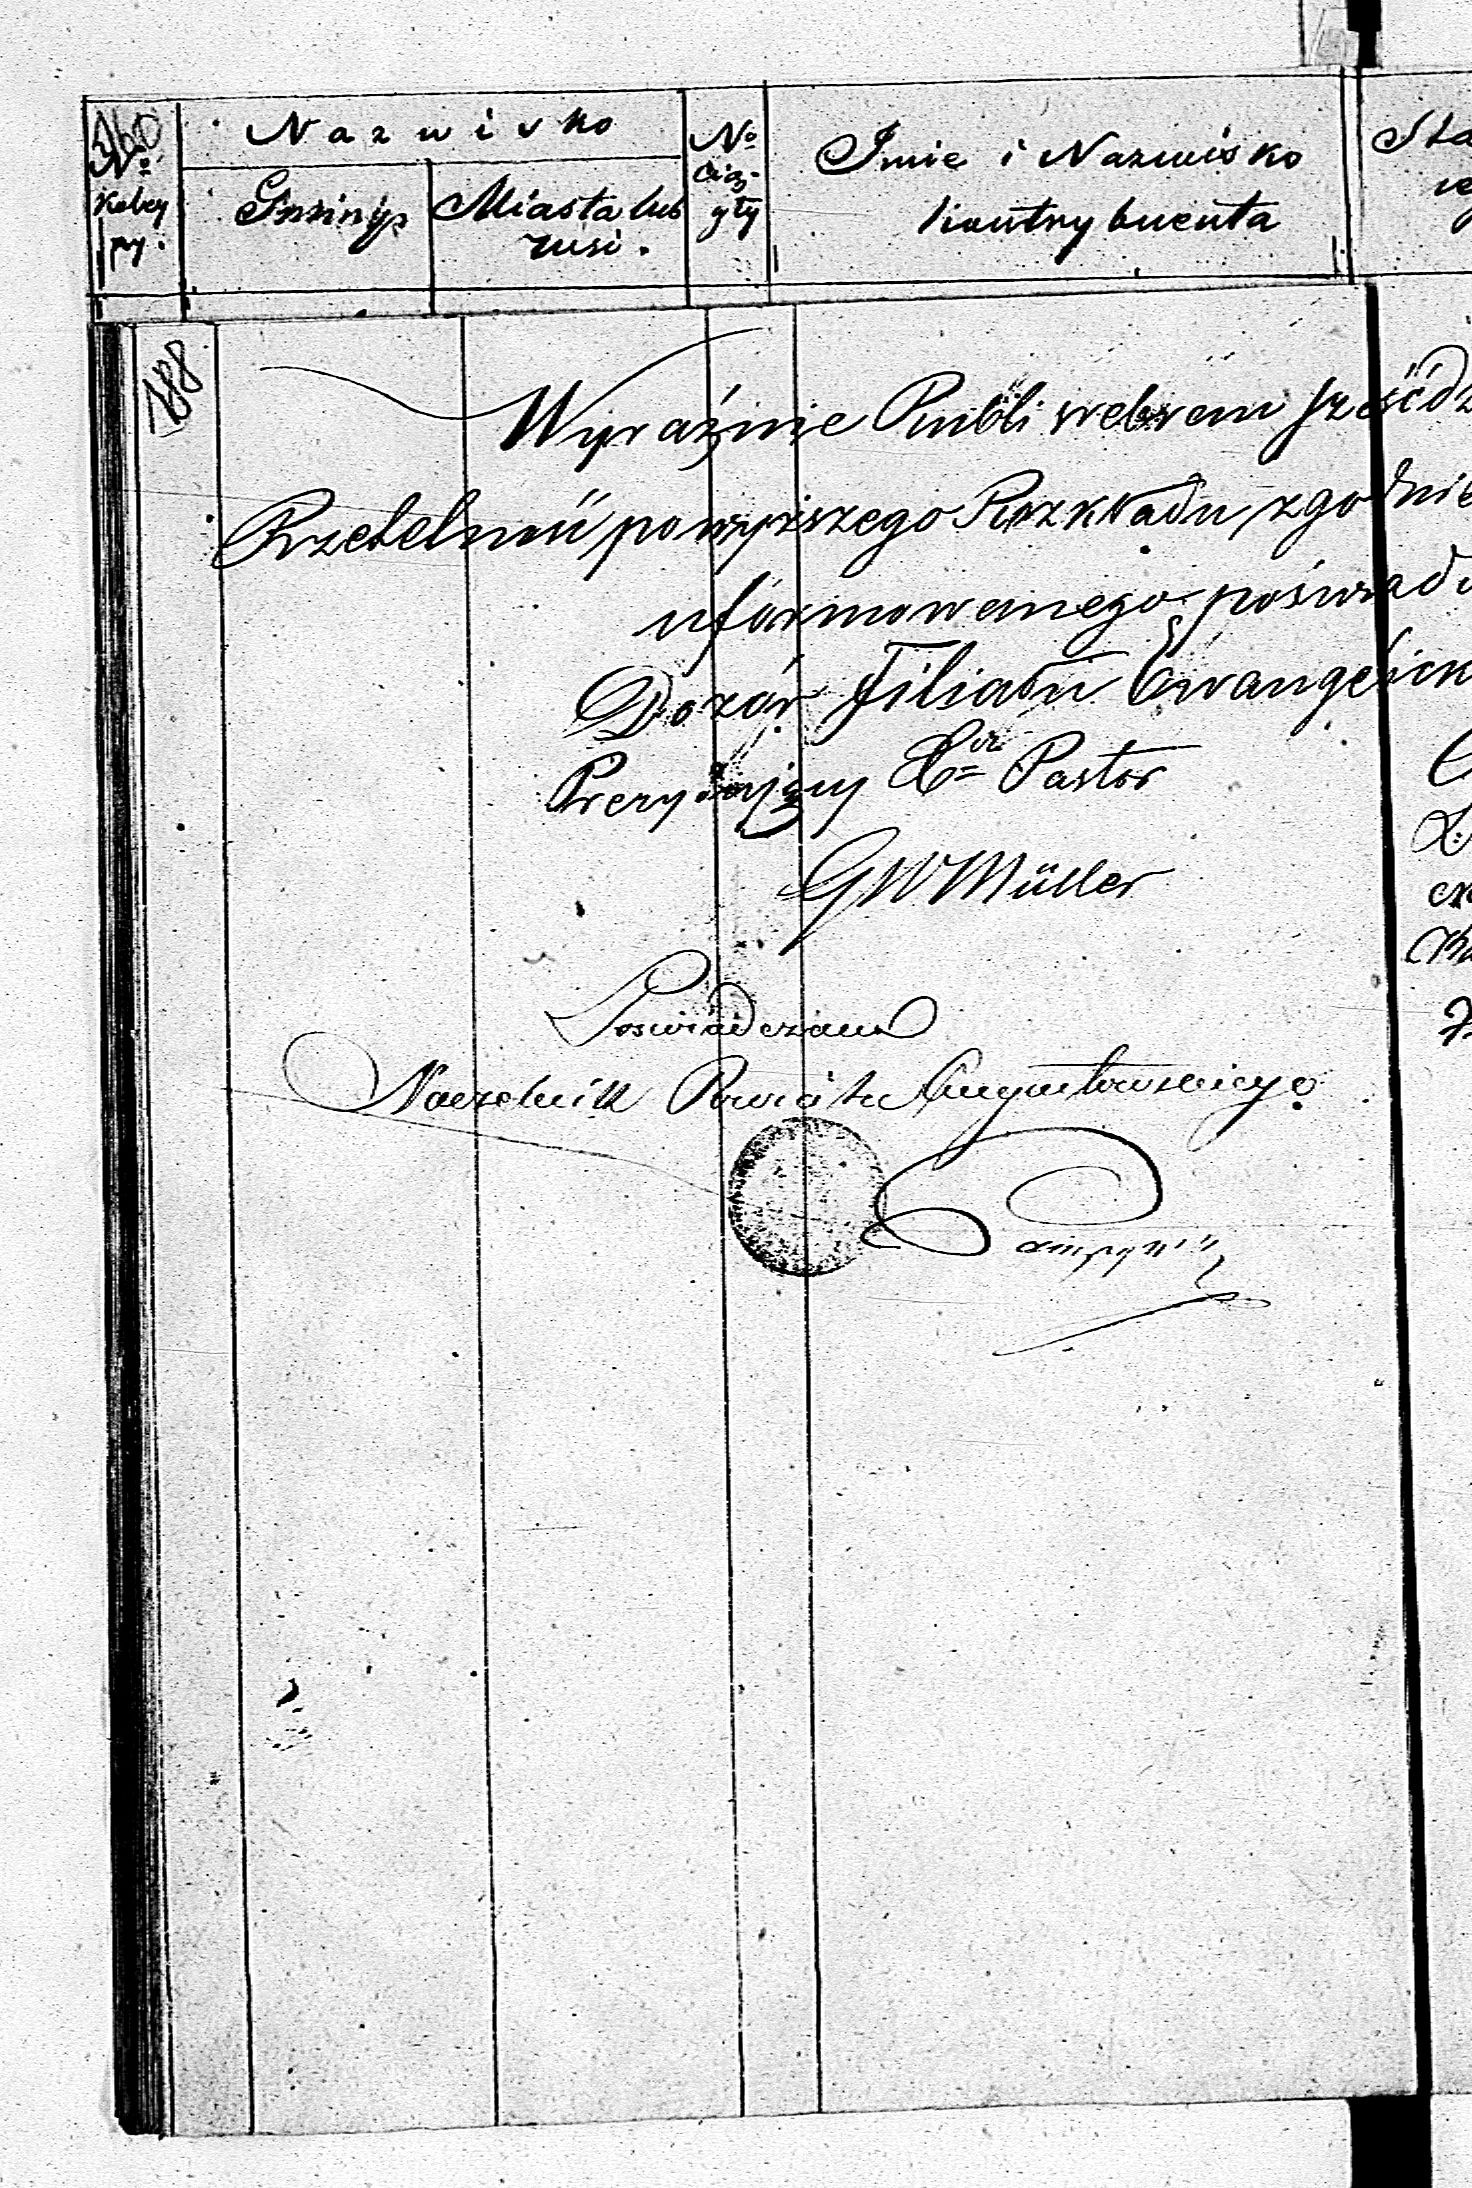 340
Nazwisko
№
Kolej
ny.
Gminy
Miasta lub
wsi.
№
ciąg-
ły
Imie i Nazwisko
kontrybuenta
Sta
188
Wyraźnie Rubli srebrem sześćdz
Rzetelność powyższego Rozkładu zgodnie
uformowanego poświad
Dozór Filiału Ewangelick
Prezydujący Xdz Pastor
GW Müller
Poświadczam
Naczelnik Powiatu Augustowskiego